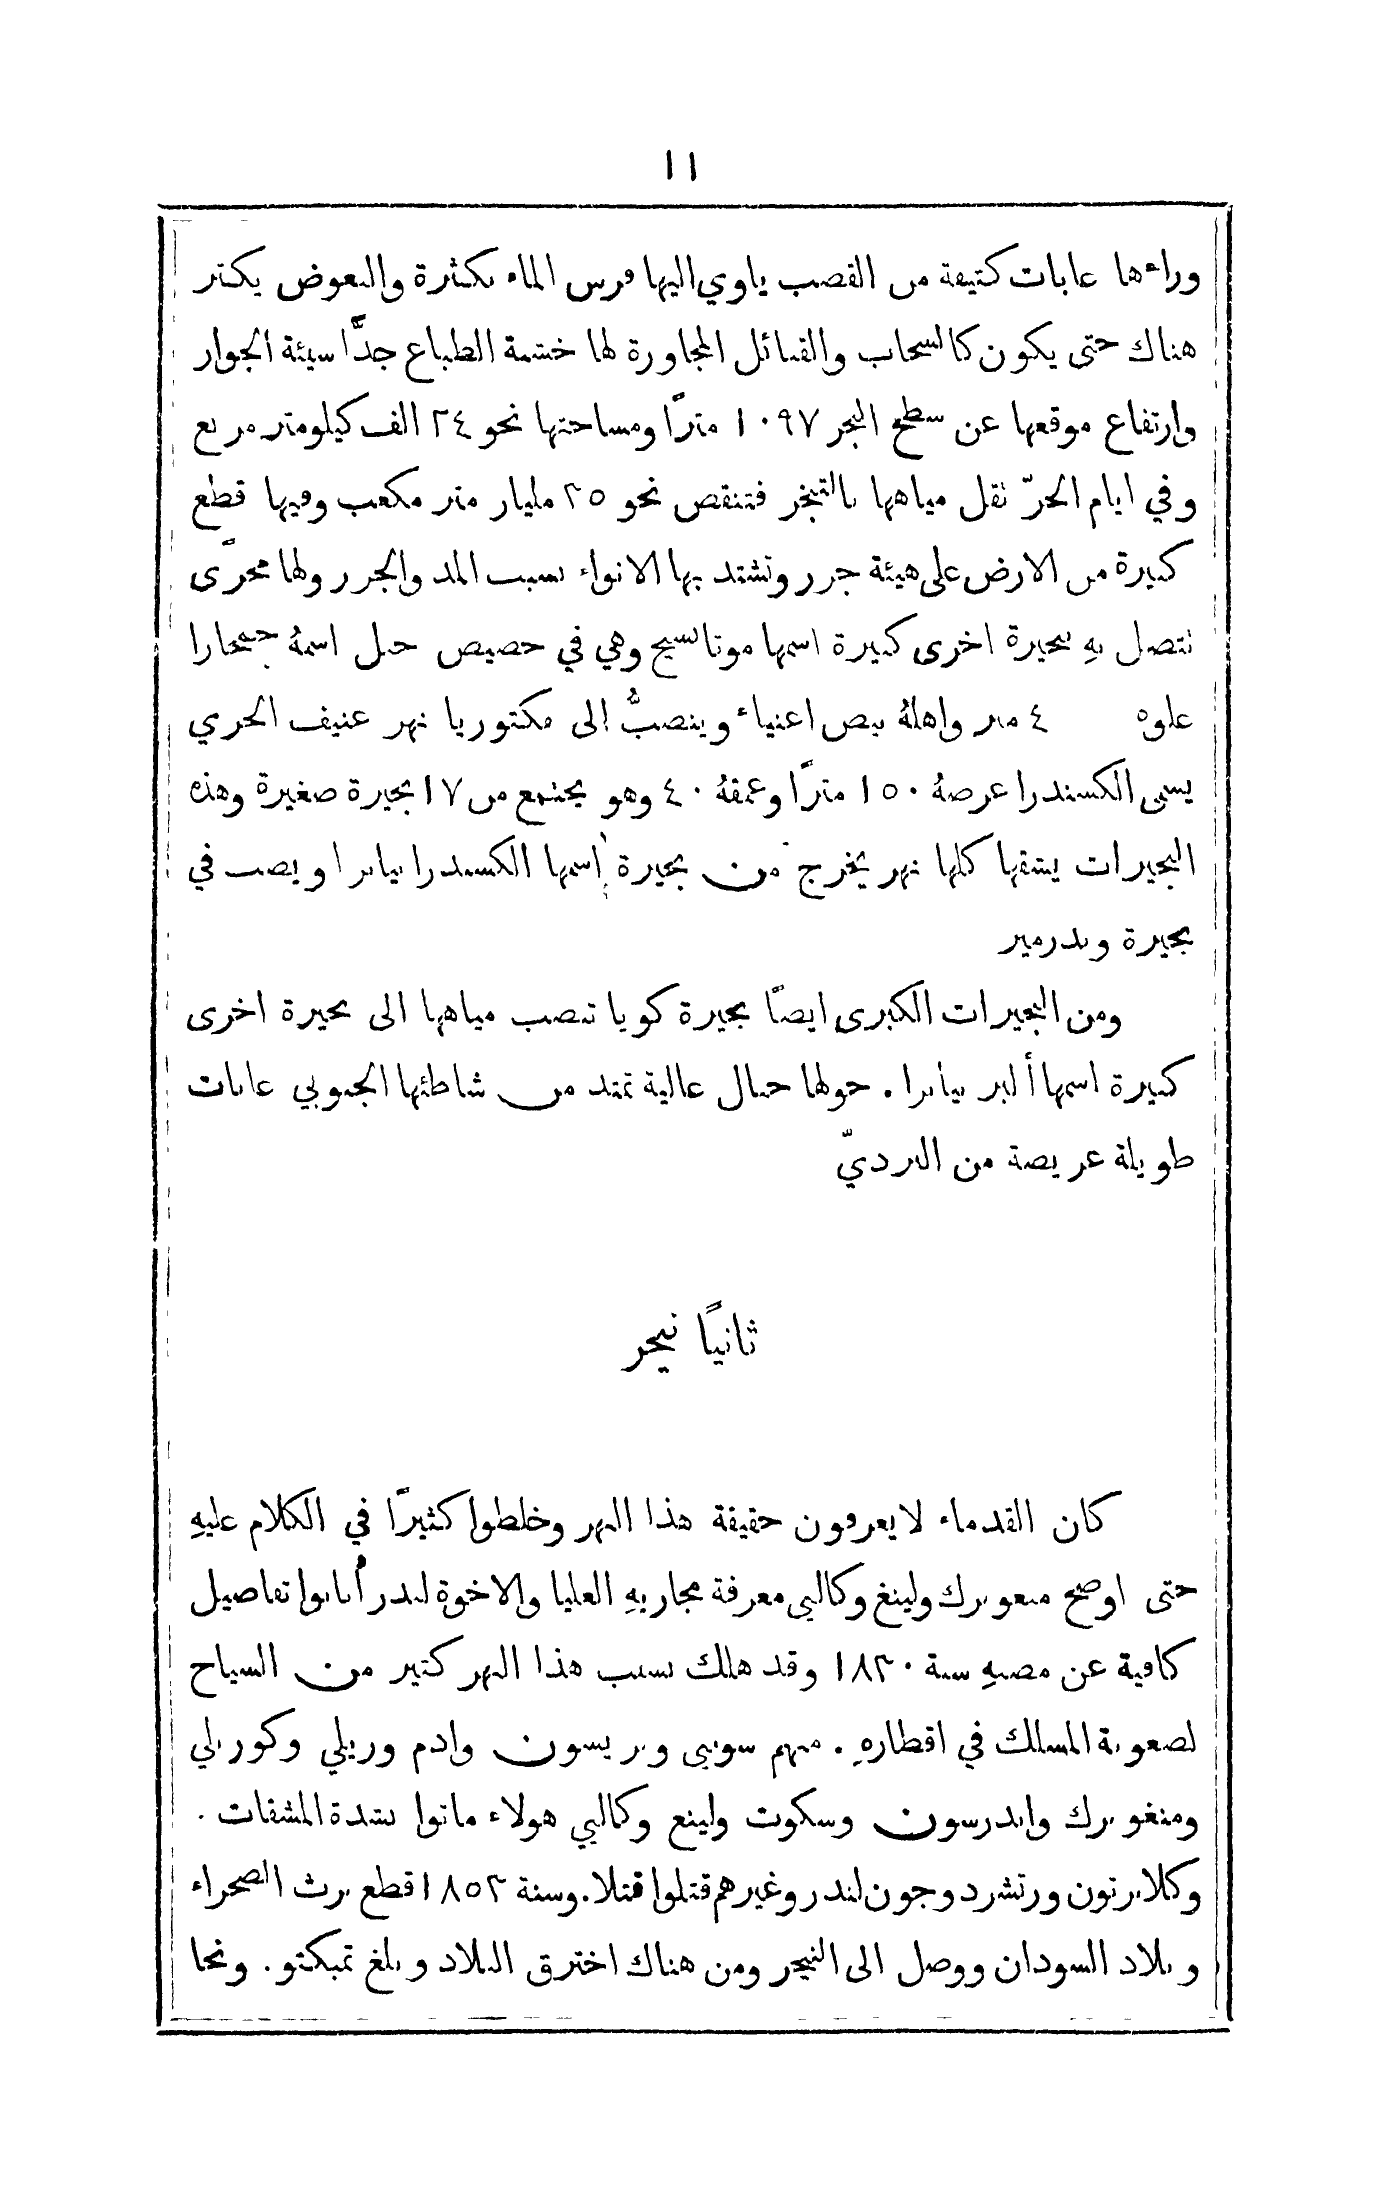 ١١
وراءها غابات كثيفة من القصب ياوي اليها فرس الماء بكثرة والبعوض يكثر
هناك حتى يكون كالسحاب والقبائل المجاورة لها خشنة الطباع جدًّا سيئة الجوار
وارتفاع موقعها عن سطح البحر ١٠٩٧ مترًا ومساحتها نحو ٢٤ الف كيلومتر مربع
وفي ايام الحرّ تقل مياهها بالتبخر فتنقص نحو ٢٥ مليار متر مكعب وفيها قطع
كبيرة من الارض على هيئة جزر وتشتد بها الانواء بسبب المد والجزر ولها مجرًى
تتصل بهِ ببحيرة اخرى كبيرة اسمها موتانسيج وهي في حضيض جبل اسمهُ
علوه ٤ متر واهلهُ بيض اغنياء وينصبُّ الى فكتوريا نهر عنيف الجري
يسمى الكسندرا عرضهُ ١٥٠ مترًا وعمقهُ ٤٠ وهو يجتمع من ١٧ بحيرة صغيرة وهذه
البحيرات يشقها كلها نهر يخرج من بحيرة اسمها الكسندرا نيانزا ويصب في
بحيرة وندرمير
ومن البحيرات الكبرى ايضًا بحيرة كويا تنصب مياهها الى بحيرة اخرى
كبيرة اسمها ألبر نيانزا . حولها جبال عالية تمتد من شاطئها الجنوبي غابات
طويلة عريضة من البرديّ
ثانيًا نيجر
كان القدماء لا يعرفون حقيقة هذا النهر وخلطوا كثيرًا في الكلام عليهِ
حتى اوضح منغو برك ولينغ وكاليي معرفة مجاريهِ العليا والاخوة لندر أبانوا تفاصيل
كافية عن مصبهِ سنة ١٨٣٠ وقد هلك بسبب هذا النهر كثير من السياح
لصعوبة المسلك في اقطارهِ . منهم سونيي وبريسون وادم وريلي وكوربلي
ومنغو برك واندرسون وسكوت ولينغ وكاليي هولاء ماتوا بشدة المشقات .
وكلابرتون ورتشرد وجون لندر وغيرهم قتلوا قتلا . وسنة ١٨٥٣ قطع برث الصحراء
وبلاد السودان ووصل الى النيجر ومن هناك اخترق البلاد وبلغ تمبكتو . ونجا